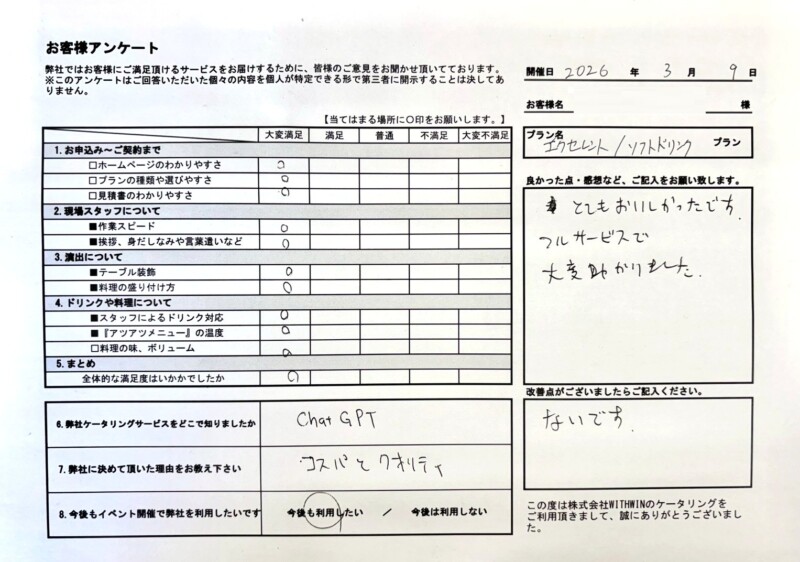 お客様アンケート
弊社ではお客様にご満足頂けるサービスをお届けするために、皆様のご意見をお聞かせ頂いてております。
※このアンケートはご回答いただいた個々の内容を個人が特定できる形で第三者に開示することは決してあ
りません。
開催日 2026 年 3 月 9 日
お客様名 様
【当てはまる場所に○印をお願いします。】
プラン名
エクセレント/ソフトドリンク プラン
大変満足 満足 普通 不満足 大変不満足
1. お申込み~ご契約まで
□ホームページのわかりやすさ ○
□プランの種類や選びやすさ ○
□見積書のわかりやすさ ○
2. 現場スタッフについて
■作業スピード ○
■挨拶、身だしなみや言葉遣いなど ○
3. 演出について
■テーブル装飾 ○
■料理の盛り付け方 ○
4. ドリンクや料理について
■スタッフによるドリンク対応 ○
■『アツアツメニュー』の温度 ○
□料理の味、ボリューム ○
5. まとめ
全体的な満足度はいかかでしたか ○
良かった点・感想など、ご記入をお願い致します。
とてもおいしかったです.
フルサービスで
大変助かりました.
改善点がございましたらご記入ください。
ないです.
6. 弊社ケータリングサービスをどこで知りましたか Chat GPT
7. 弊社に決めて頂いた理由をお教え下さい コスパとクオリティ
8. 今後もイベント開催で弊社を利用したいです 今後も利用したい / 今後は利用しない
この度は株式会社WITHWINのケータリングを
ご利用頂きまして、誠にありがとうございまし
た。